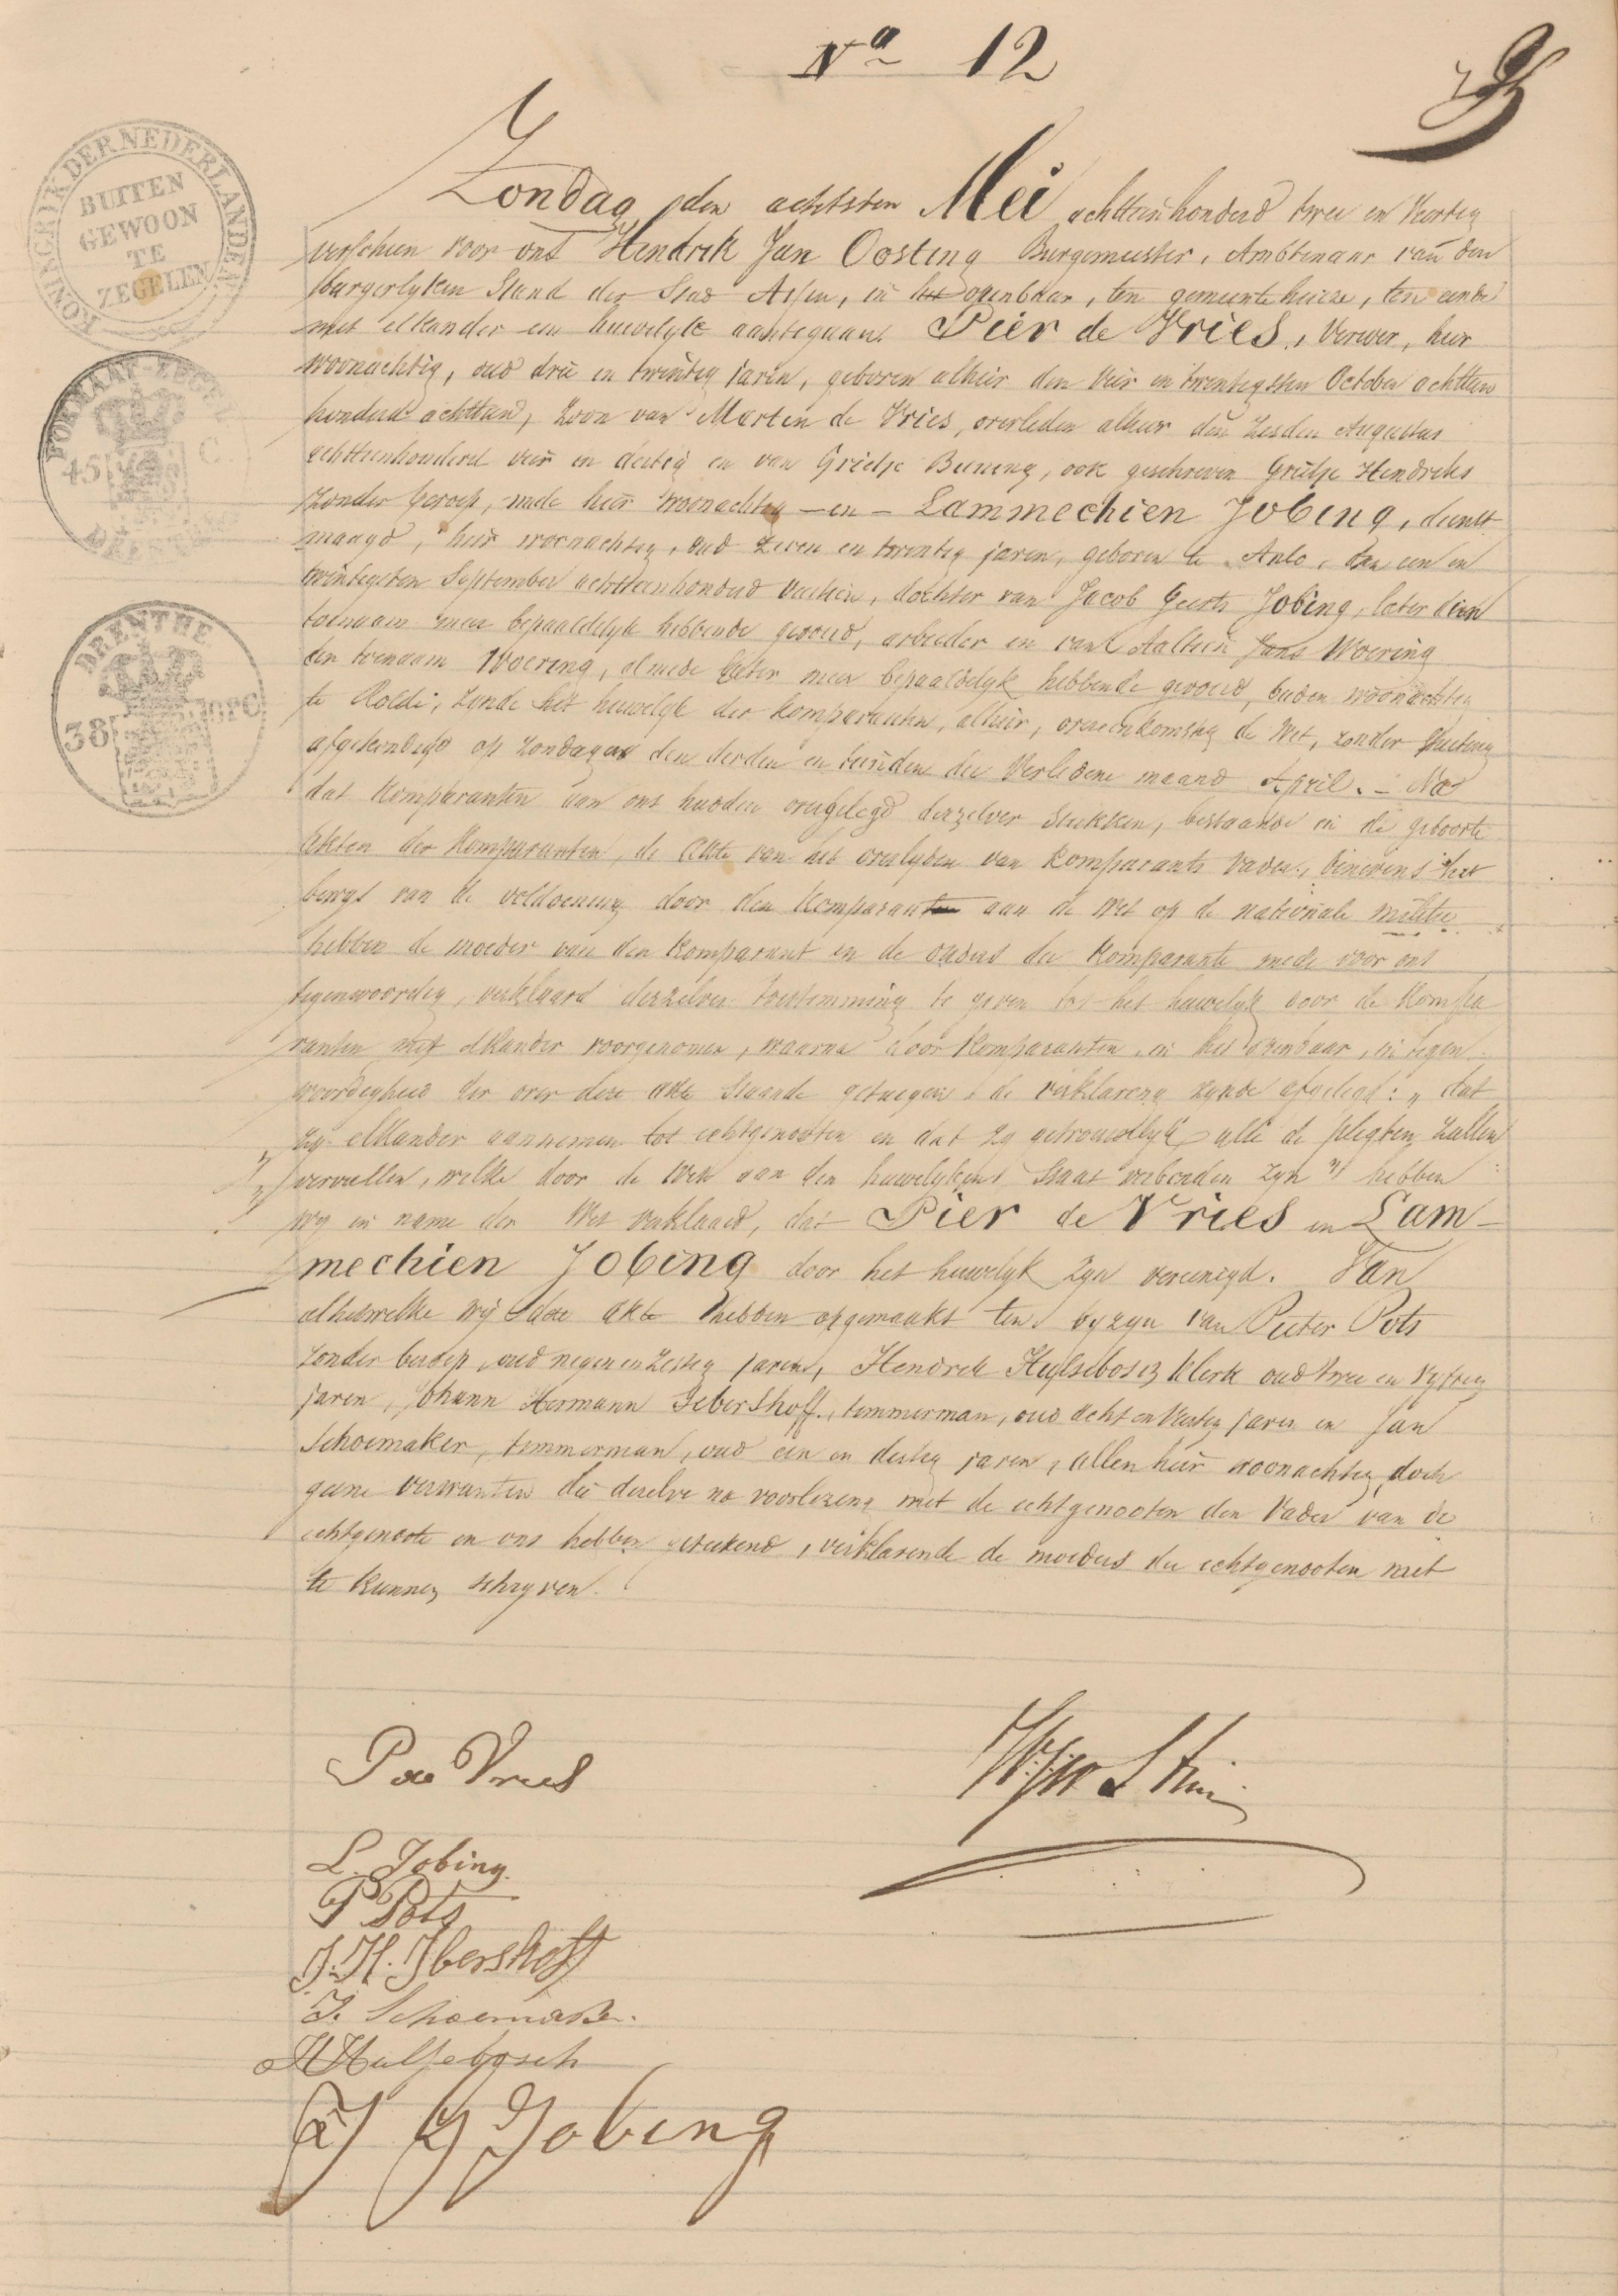 Nº 12
KONINGRYK DER NEDERLANDEN
BUITEN
GEWOON
TE
ZEGELEN
45 C
DRENTHE
38 OPC
Zondag, den achtsten Mei achttienhonderd twee en Veertig
verscheen voor ons Hendrik Jan Oosting Burgemeester, Ambtenaar van den
burgerlyken Stand der Stad Assen, in het openbaar, ten gemeentehuize, ten einde
met elkander een huwelyk aantegaan. Pier de Vries, Verwer, hier
woonachtig, oud drie en twintig jaren, geboren alhier den vier en twintigsten October achttien
honderd achttien, zoon van Marten de Vries, overleden alhier den zesden Augustus
achttienhonderd vier en dertig en van Grietje Buning, ook geschreven Grietje Hendriks
zonder beroep, mede hier woonachtig — en — Lammechien Jobing, dienst
maagd, hier woonachtig, oud zeven en twintig jaren, geboren te Anlo, den een en
twintigsten September achttienhonderd veertien, dochter van Jacob Geerts Jobing, later dien
toenaam meer bepaaldelyk hebbende gevoerd, arbeider en van Aaltien Jans Woering
den toenaam Woering, almede later meer bepaaldelyk hebbende gevoerd, beiden woonachtig
te Rolde, zynde het huwelyk der komparanten, alhier, overeenkomstig de Wet, zonder stuiting
afgekondigd op Zondagen den derden en tienden der Verledene maand April. — Na
dat komparanten aan ons hadden overgelegd derzelver stukken, bestaande in de geboorte
akten der Komparanten, de akte van het overlyden van komparants vader, benevens het
bewys van de voldoening door den komparant aan de Wet op de nationale militie
hebben de moeder van den Komparant en de ouders der Komparante mede voor ons
tegenwoordig, verklaard derzelver toestemming te geven tot het huwelyk door de Kompa
ranten met elkander voorgenomen, waarna door Komparanten, in het openbaar, in tegen
woordigheid der over deze akte staande getuigen de verklaring zynde afgelegd: „dat
„zy elkander aannemen tot echtgenooten en dat zy getrouwelyk alle de plegten zullen
„vervullen, welke door de Wet aan den huwelyken Staat verbonden zyn" hebben
wy in name der Wet verklaard, dat Pier de Vries en Lam-
mechien Jobing door het huwelyk zyn vereenigd. Van
al hetwelke wij deze akte hebben opgemaakt ten byzyn van Pieter Pots
zonder beroep, oud negen en zestig jaren, Hendrik Hulsebosch klerk oud twee en vyftig
jaren, Johann Hermann Iebershoff, timmerman, oud acht en veertig jaren en Jan
Schoemaker, timmerman, oud een en dertig jaren, allen hier woonachtig, doch
geene verwanten die dezelve na voorlezing met de echtgenooten den Vader van de
echtgenoote en ons hebben geteekend, verklarende de moeders der echtgenooten niet
te kunnen schryven.
P de Vries
L. Jobing.
P Pots
J. H. Ibershoff
J. Schoemaker.
H Hulsebosch
J G Jobing